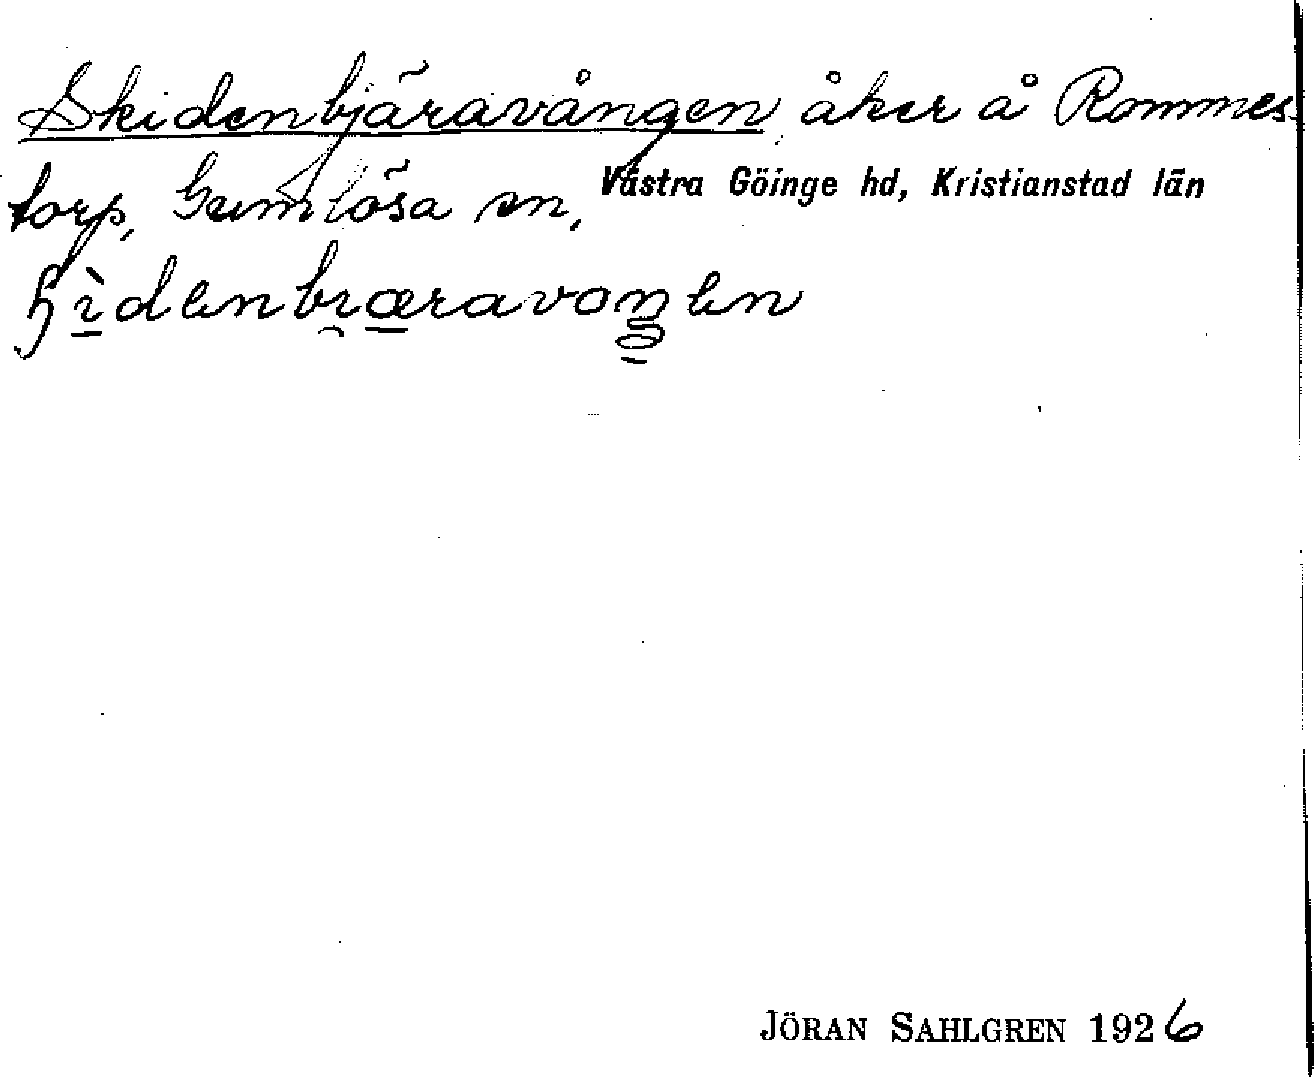 Skidenbjäravången, åker å Rommes-
torp, Gumlösa sn, Västra Göinge hd, Kristianstad län
ɧìdenbɪæravoŋen
JÖRAN SAHLGREN 1926